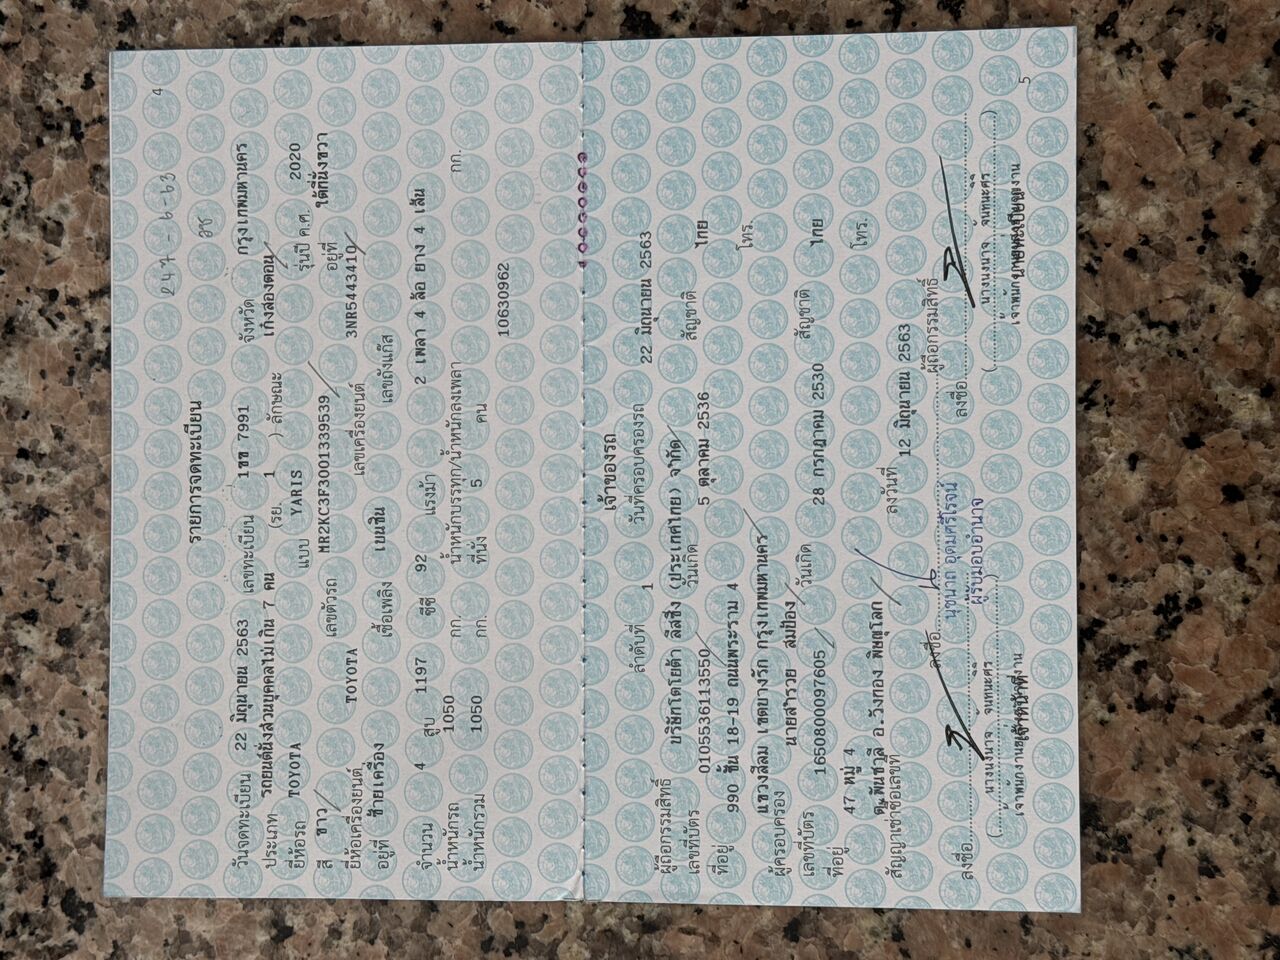 4
247-6-63
รายการจดทะเบียน
วันจดทะเบียน 22 มิถุนายน 2563 เลขทะเบียน 1ขฆ 7991 จังหวัด กรุงเทพมหานคร
ประเภท รถยนต์นั่งส่วนบุคคลไม่เกิน 7 คน (รย. 1 ) ลักษณะ เก๋งสองตอน
ยี่ห้อรถ TOYOTA แบบ YARIS รุ่นปี ค.ศ. 2020
สี ขาว เลขตัวรถ MR2KC3F3001339539 อยู่ที่ ใต้ที่นั่งขวา
ยี่ห้อเครื่องยนต์ TOYOTA เลขเครื่องยนต์ 3NR5443410
อยู่ที่ ซ้ายเครื่อง เชื้อเพลิง เบนซิน เลขถังแก๊ส
จำนวน 4 สูบ 1197 ซีซี 92 แรงม้า 2 เพลา 4 ล้อ ยาง 4 เส้น
น้ำหนักรถ 1050 กก. น้ำหนักบรรทุก/น้ำหนักลงเพลา กก.
น้ำหนักรวม 1050 กก. ที่นั่ง 5 คน
10630962
เจ้าของรถ
ลำดับที่ 1 วันที่ครอบครองรถ 22 มิถุนายน 2563
ผู้ถือกรรมสิทธิ์ บริษัทโตโยต้า ลีสซิ่ง (ประเทศไทย) จำกัด
เลขที่บัตร 0105536113550 วันเกิด 5 ตุลาคม 2536 สัญชาติ ไทย
ที่อยู่ 990 ชั้น 18-19 ถนนพระราม 4 โทร.
แขวงสีลม เขตบางรัก กรุงเทพมหานคร
ผู้ครอบครอง นายสำรวย สมป้อง
เลขที่บัตร 1650800097605 วันเกิด 28 กรกฎาคม 2530 สัญชาติ ไทย
ที่อยู่ 47 หมู่ 4 โทร.
ต.พันชาลี อ.วังทอง พิษณุโลก
สัญญาเช่าซื้อเลขที่ ลงวันที่ 12 มิถุนายน 2563
ลงชื่อ ผู้ถือกรรมสิทธิ์
นุชนาถ อุดมศรีโรจน์
ผู้รับมอบอำนาจ
ลงชื่อ ลงชื่อ
(นางนงนาจ จันทนะศร) (นางนงนาจ จันทนะศร)
เจ้าหน้าที่ นายทะเบียน
5